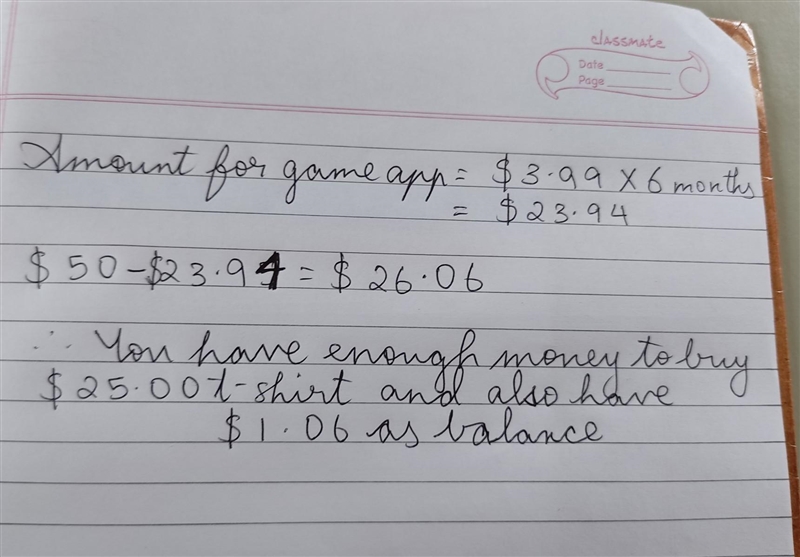 classmate
Date
Page
Amount for game app = $3.99 X 6 months
= $23.94
$50-$23.94 = $26.06
∴ You have enough money to buy
$25.00 t-shirt and also have
$1.06 as balance